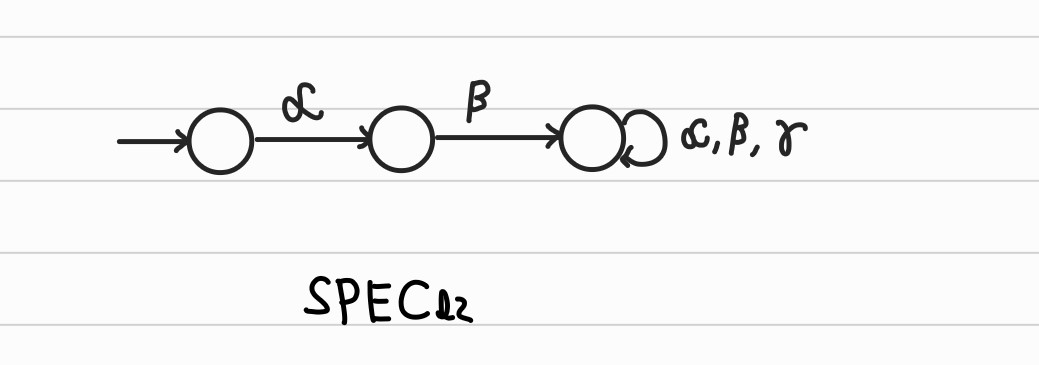 α β α, β, γ
SPEC